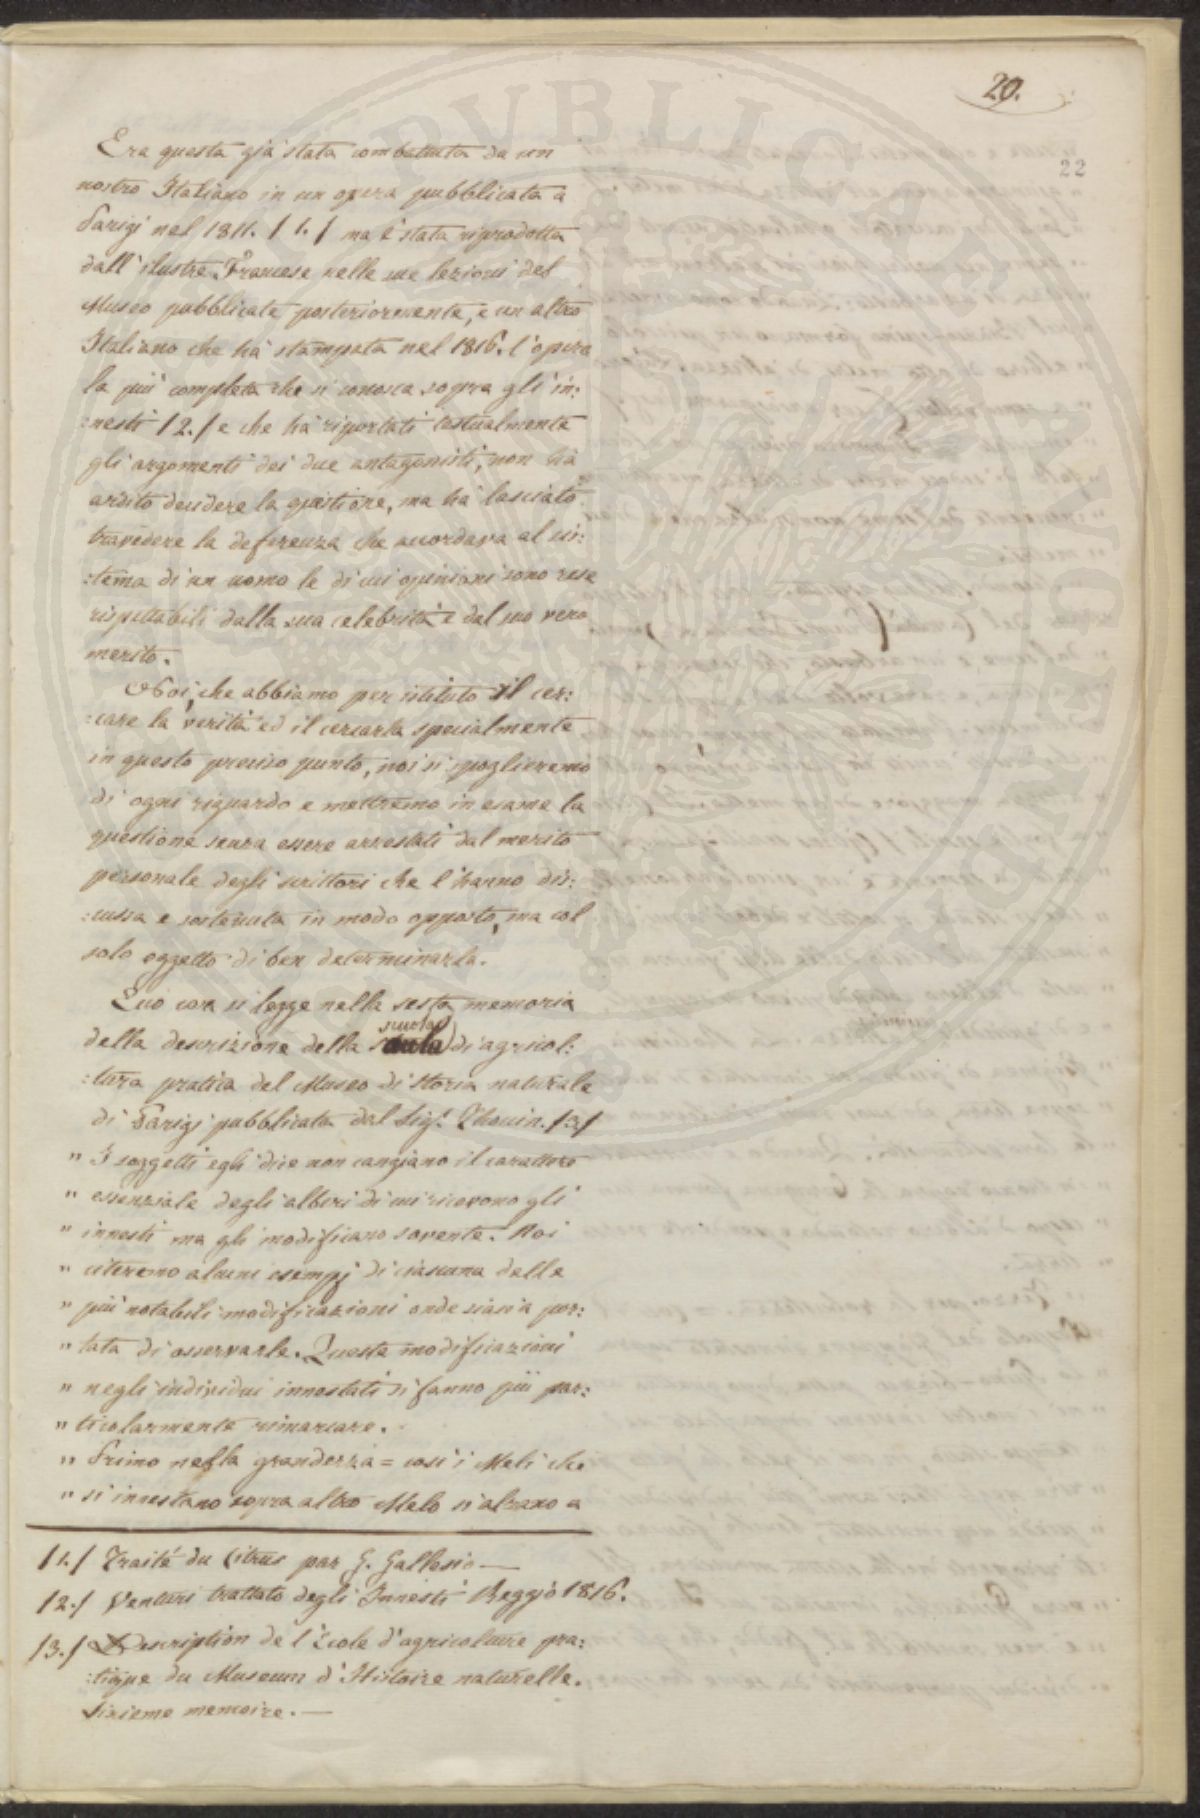 20.
22
Era questa già stata combattuta da un
nostro Italiano in un opera pubblicata a
Parigi nel 1811. /1./ ma è stata riprodotta
dall'ilustre Francese nelle sue lezioni del
Museo pubblicate posteriormente, e un altro
Italiano che hà stampata nel 1816. l'opera
la più completa che si conosca sopra gli in:
:nesti /2./ e che hà riportati testualmente
gli argomenti dei due antagonisti, non hà
ardito decidere la questione, ma hà lasciato
travedere la deferenza che accordava al sis:
:tema di un uomo le di cui opinioni sono rese
rispettabili dalla sua celebrità e dal suo vero
merito.
Noi, che abbiamo per istituto il cer:
:care la verità ed il cercarla specialmente
in questo preciso punto, noi si spoglieremo
di ogni riguardo e metteremo in esame la
questione senza essere arrestati dal merito
personale degli scrittori che l'hanno dis:
:cussa e sostenuta in modo opposto, ma col
solo oggetto di ben determinarla.
Ecco cosa si legge nella sesta memoria
scuola
della descrizione della di agricol:
:tura pratica del Museo di storia naturale
di Parigi pubblicata dal Sig.r Thouin. /3./
" I soggetti egli dice non cangiano il carattere
" essenziale degli alberi di cui ricevono gli
" innesti ma gli modificano sovente. Noi
" citeremo alcuni esempj di ciascuna delle
" più notabili modificazioni onde siasi a por:
" tata di osservarle. Queste modificazioni
" negli individui innestati si fanno più par:
" ticolarmente rimarcare.
" Primo nella grandezza = così i Meli che
" si innestano sopra altro Melo si alzano a
/1./ Traité du Citrus par G. Gallesio —
/2./ Venturi trattato degli Innesti Reggio 1816.
/3./ Description de l'École d'agricolture pra:
:tique du Museum d'Histoire naturelle.
Sixieme memoire. —